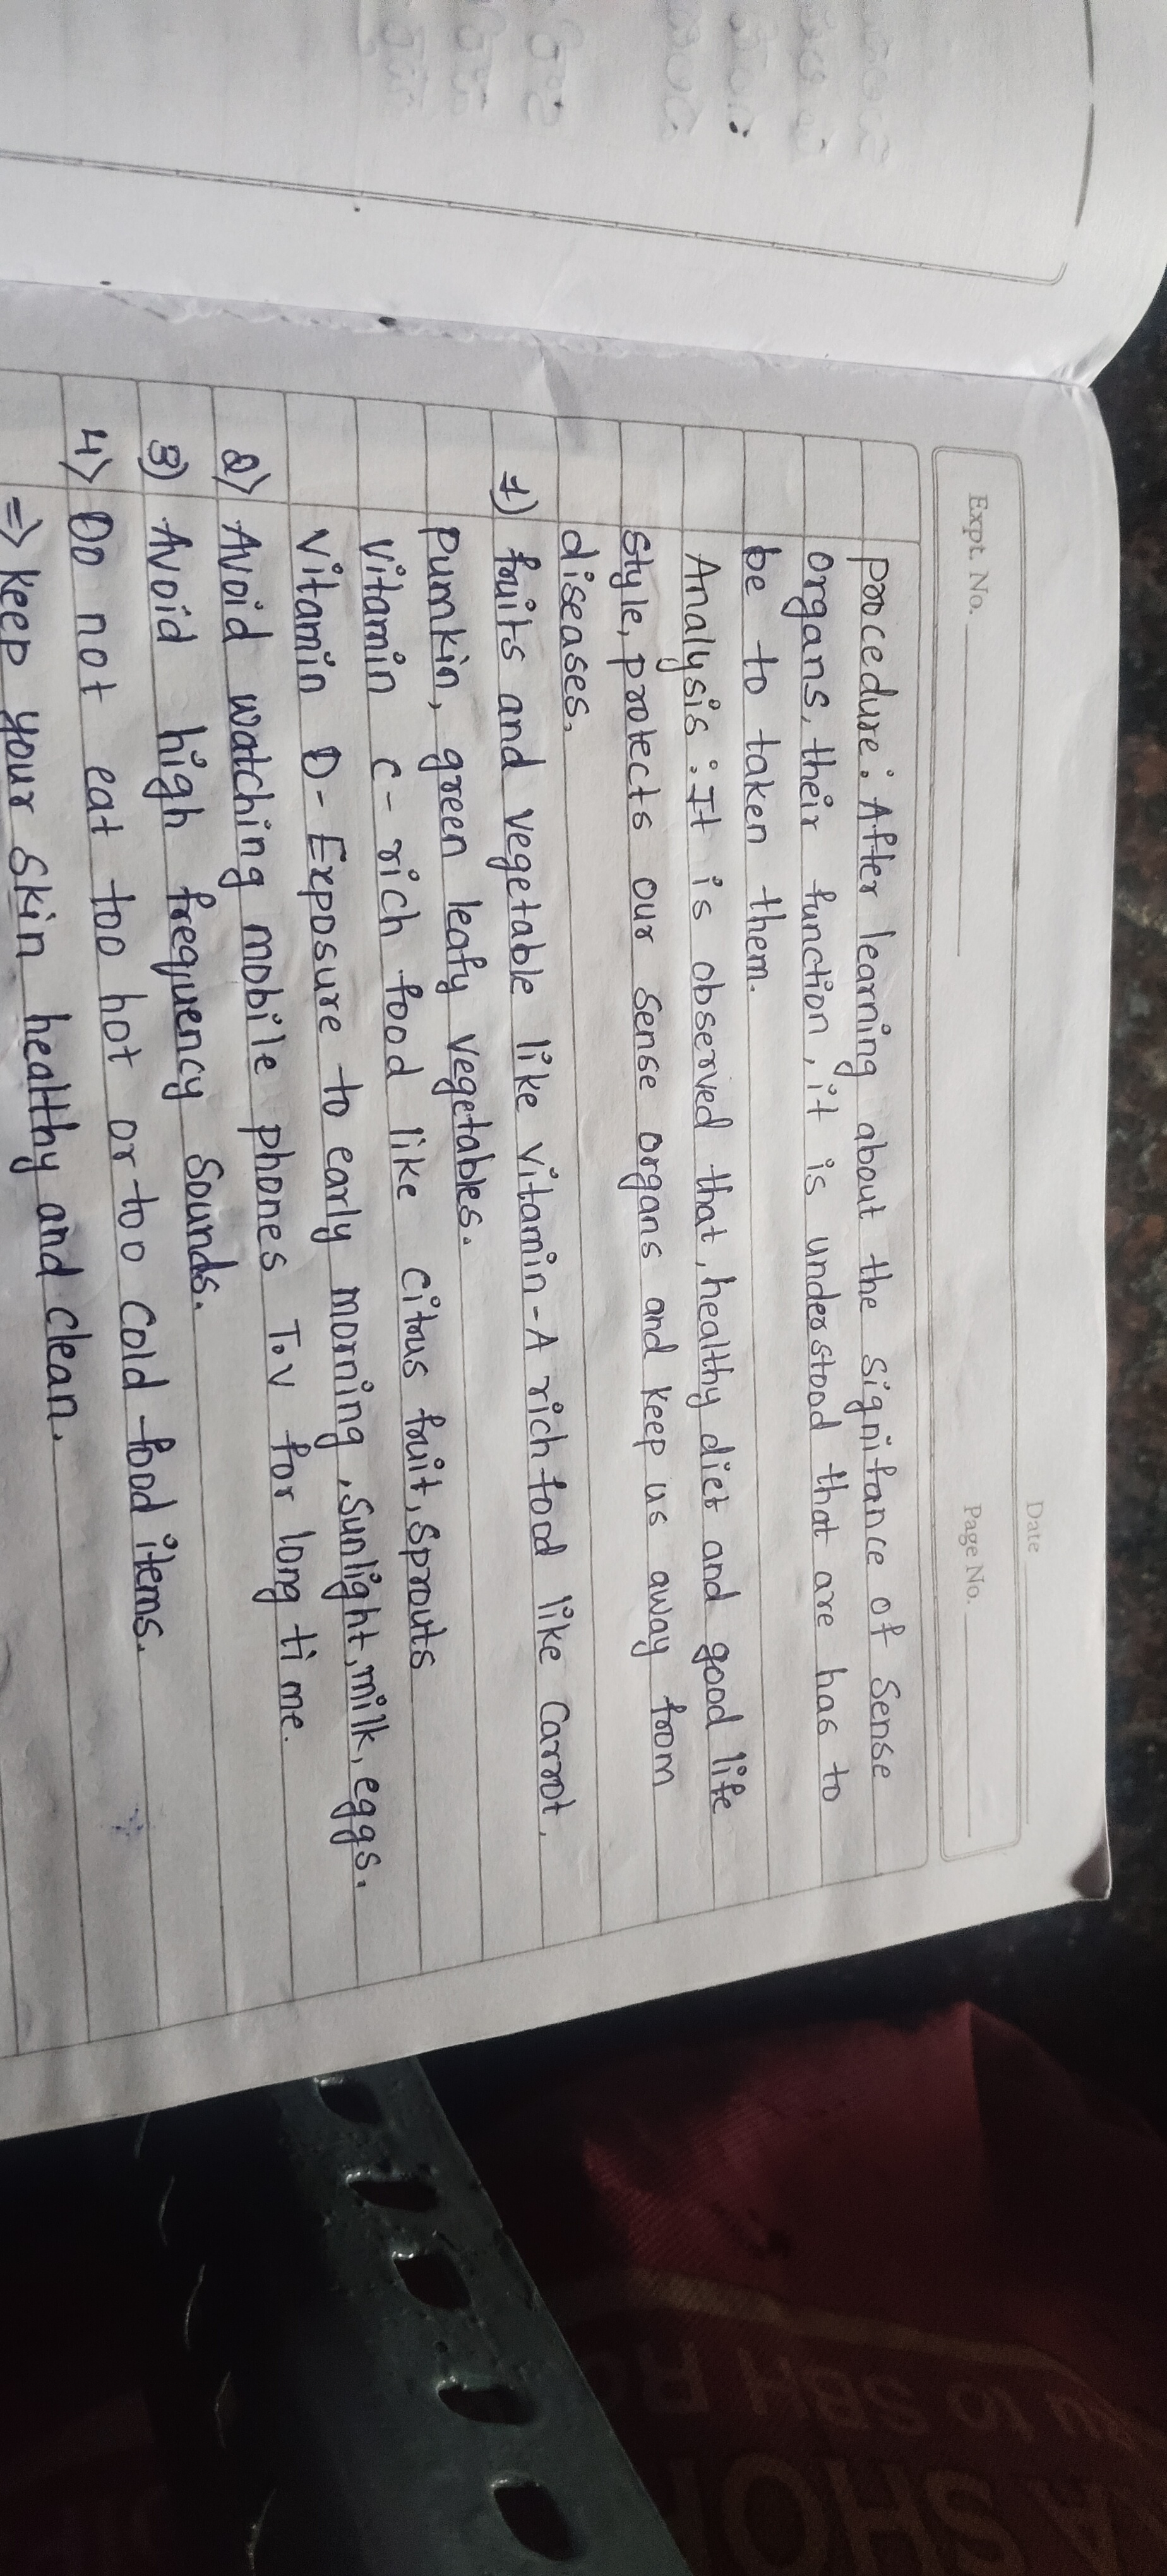 Date
Expt. No.
Page No.
procedure: After learning about the signifance of sense
organs, their function, it is understood that are has to
be to taken them.
Analysis: It is observed that, healthy diet and good life
style, protects our sense organs and keep us away from
diseases.
1) fruits and vegetable like vitamin-A rich food like carrot,
pumkin, green leafy vegetables.
vitamin c- rich food like citrus fruit, sprouts
vitamin D- Exposure to early morning, sunlight, milk, eggs.
2) Avoid watching mobile phones T.V for long time.
3) Avoid high frequency sounds.
4) Do not eat too hot or too cold food items.
=> keep your skin healthy and clean.